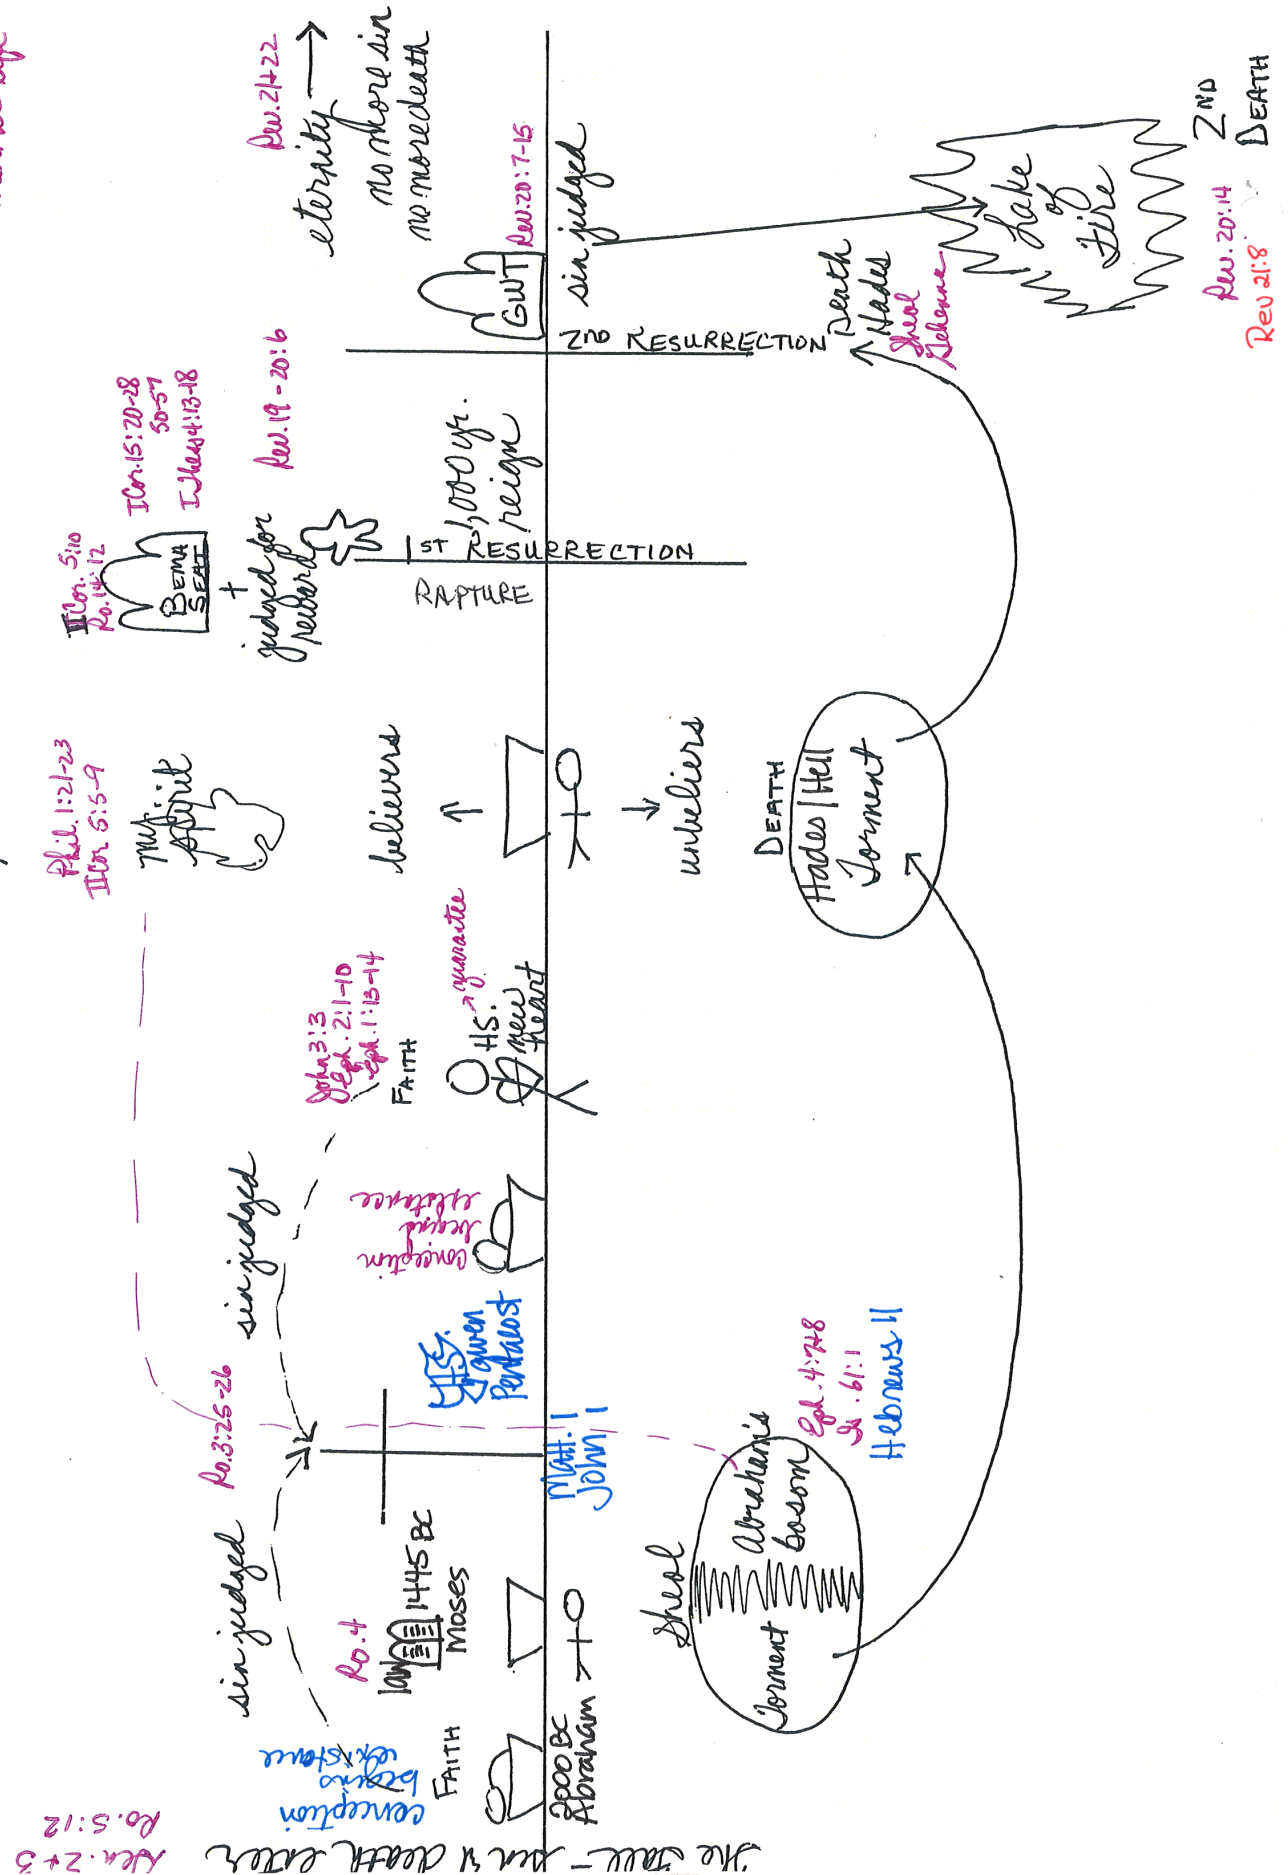 The Fall – sin & death enter
Gen. 2+3
Ro. 5:12
conception
begins
existance
FAITH
2000 BC
Abraham
sin judged
Ro. 4
law
1445 BC
Moses
Sheol
Torment
Abraham's
bosom
Eph. 4:7+8
Is. 61:1
Hebrews 11
Ro. 3:25-26
Matt. 1
John 1
H.S.
given
Pentacost
sin judged
conception
begins
existance
John 3:3
Eph. 2:1-10
Eph. 1:13-14
FAITH
H.S. → guarantee
new
heart
Phil. 1:21-23
II Cor. 5:5-9
my
spirit
believers
unbeliers
DEATH
Hades/Hell
Torment
II Cor. 5:10
Ro. 14:12
BEMA
SEAT
+
judged for
reward
I Cor. 15:20-28
50-57
I Thess 4:13-18
Rev. 19-20:6
RAPTURE
1ST RESURRECTION
1,000 yr.
reign
2ND RESURRECTION
GWT
Rev. 20:7-15
sin judged
Death
Hades
Sheol
Gehenna
Lake
of
Fire
2ND
DEATH
Rev. 20:14
Rev 21:8
Rev. 21+22
eternity →
no more sin
no more death